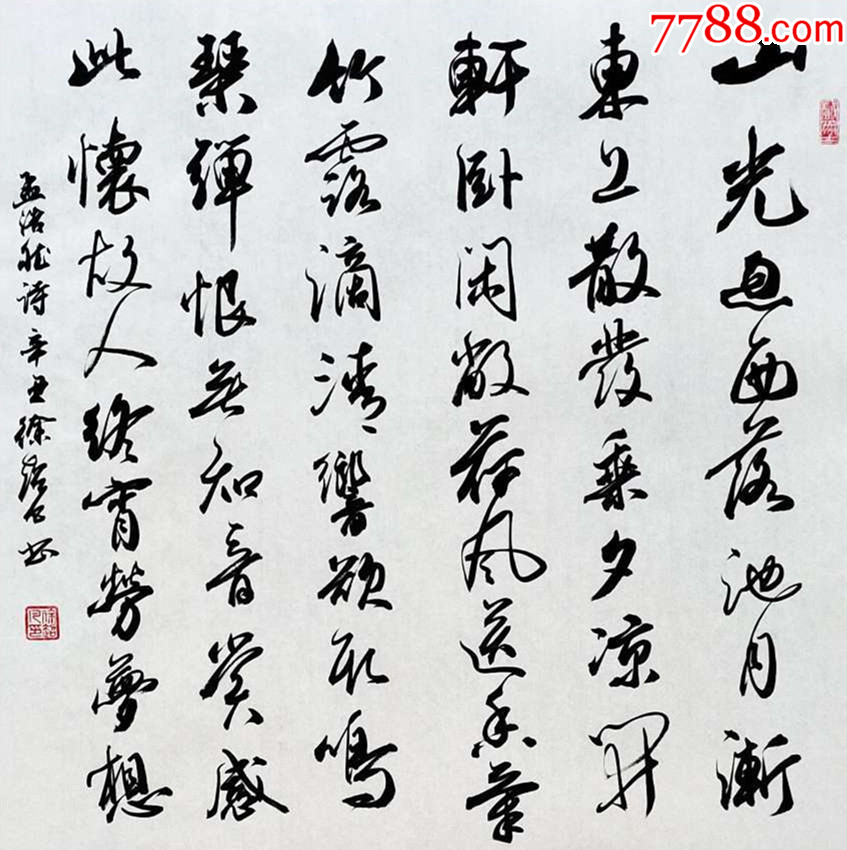 7788.com
山光忽西落池月漸
東上散發乘夕涼開
軒卧閑敞荷風送香氣
竹露滴清響欲取鳴
琴彈恨無知音賞感
此懷故人終宵勞夢想
孟浩然詩辛丑徐